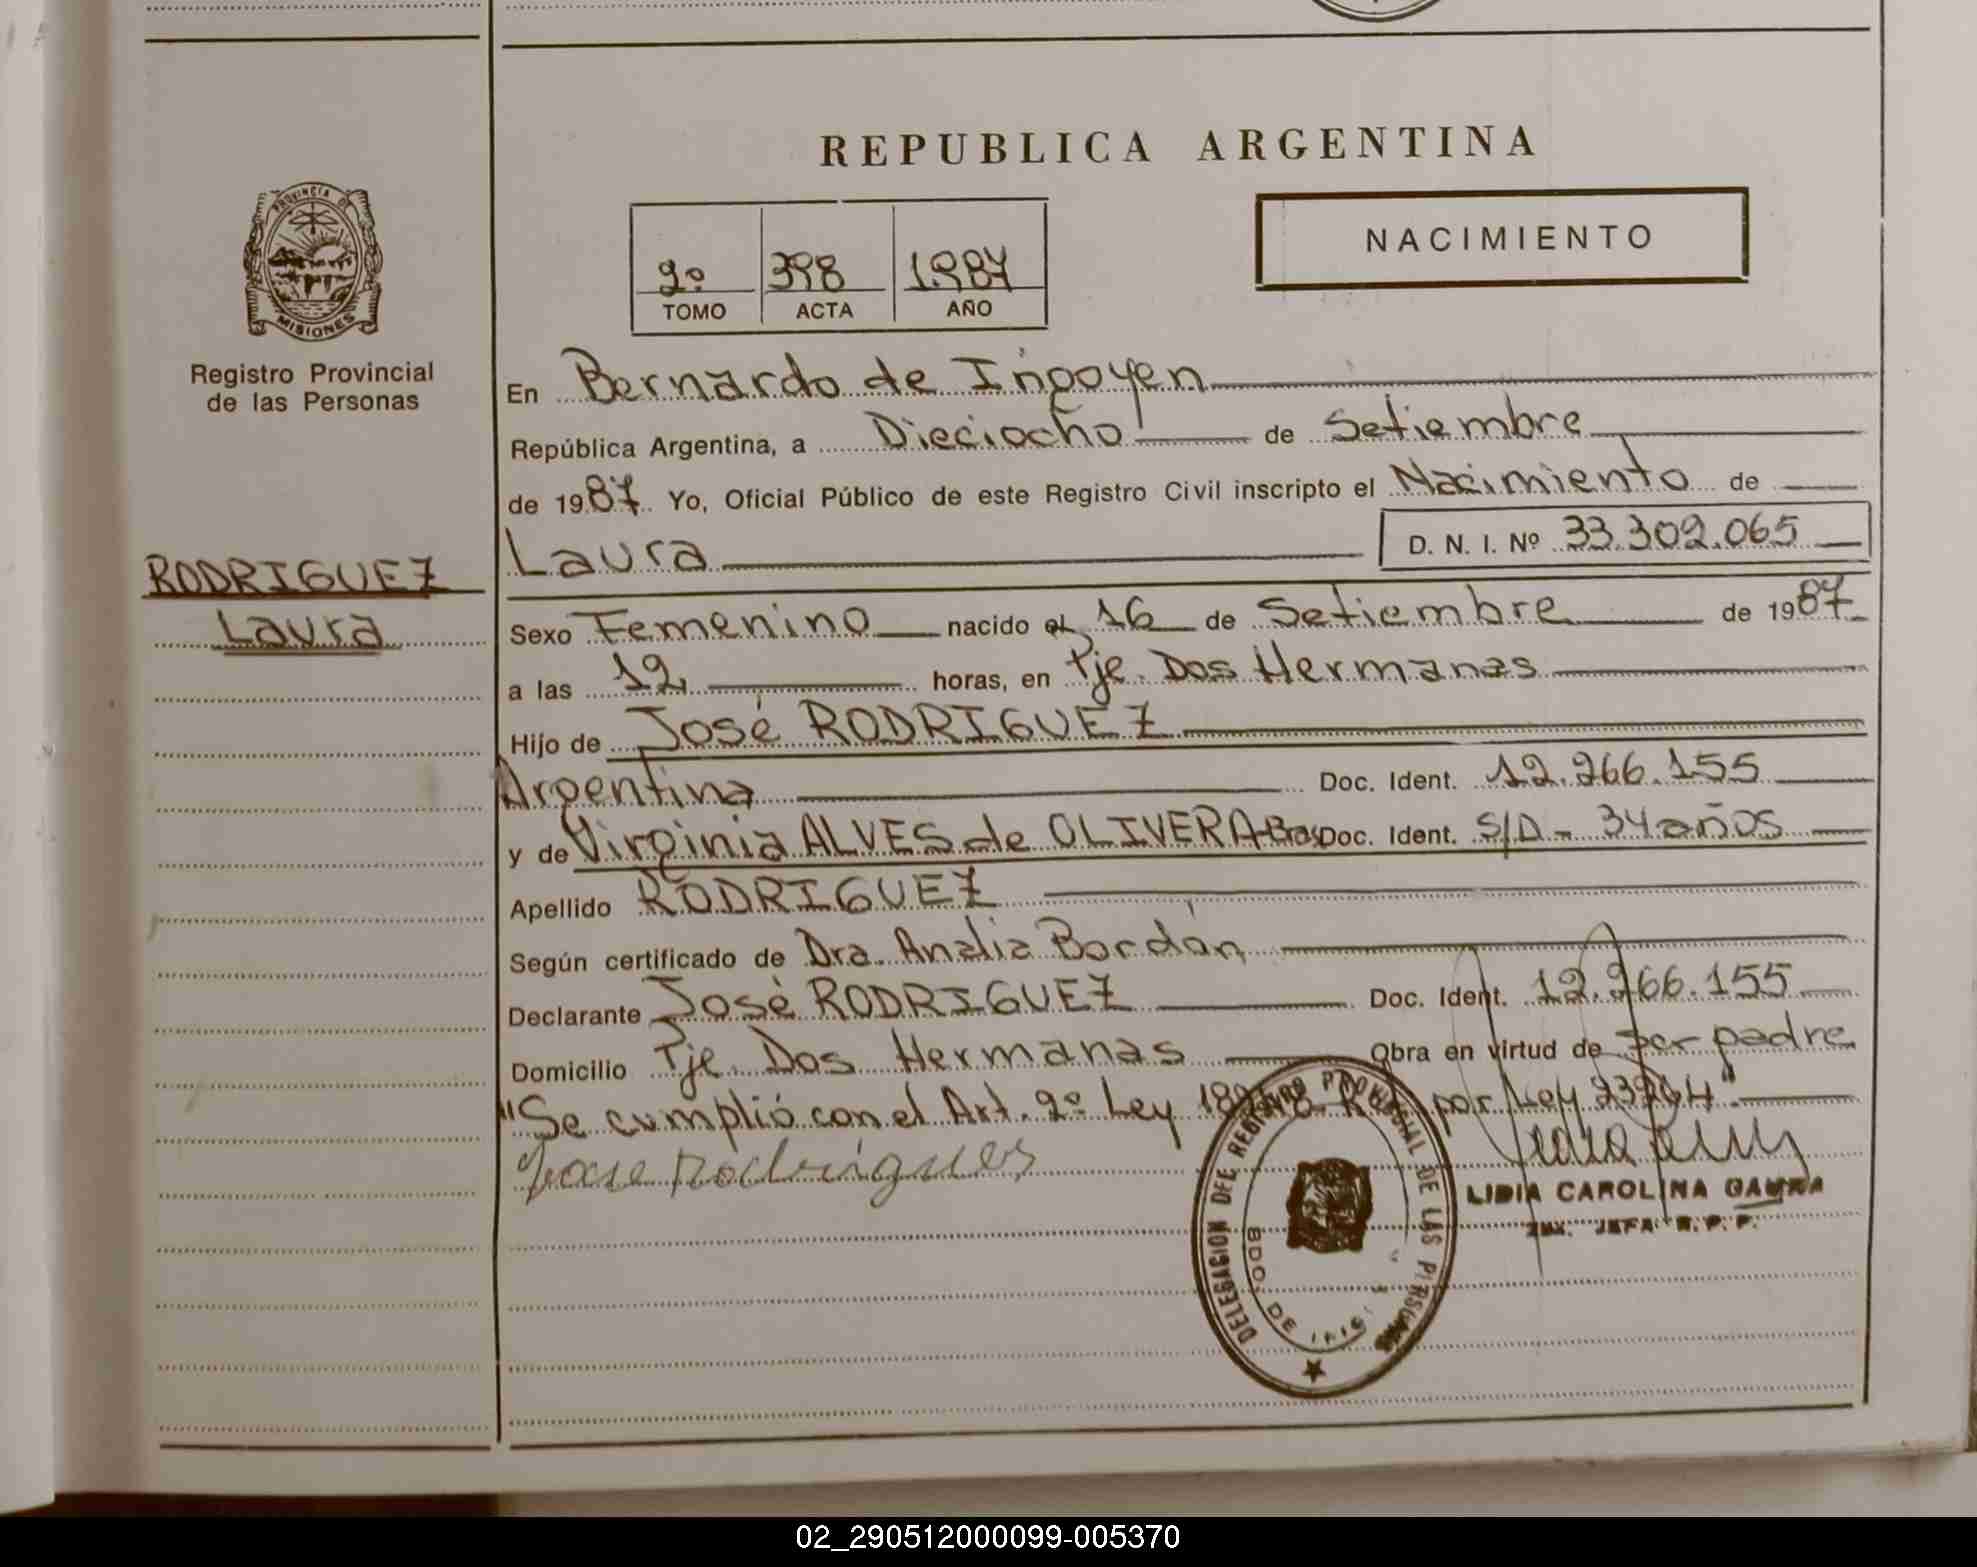 REPUBLICA ARGENTINA
PROVINCIA D
MISIONES
Registro Provincial
de las Personas
2º 398 1.987
TOMO ACTA AÑO
NACIMIENTO
En Bernardo de Irigoyen
República Argentina, a Dieciocho de Setiembre
de 1987 Yo, Oficial Público de este Registro Civil inscripto el Nacimiento de
Laura D. N. I. Nº 33.302.065
RODRIGUEZ
Laura
Sexo Femenino nacido el 16 de Setiembre de 1987
a las 12 horas, en Pje. Dos Hermanas
Hijo de José RODRIGUEZ
Argentina Doc. Ident. 12.266.155
y de Virginia ALVES de OLIVERA-Bras Doc. Ident. S/D - 34 años
Apellido RODRIGUEZ
Según certificado de Dra. Analia Bordán
Declarante José RODRIGUEZ Doc. Ident. 12.266.155
Domicilio Pje. Dos Hermanas Obra en virtud de ser padre
"Se cumplió con el Art. 2º Ley por Ley 23264"
Jose Rodrigues
LIDIA CAROLINA
JEFA R. P. P.
DELEGACION DEL REGISTRO PROVINCIAL DE LAS PERSONAS
BDO. DE IRIG.
02_290512000099-005370